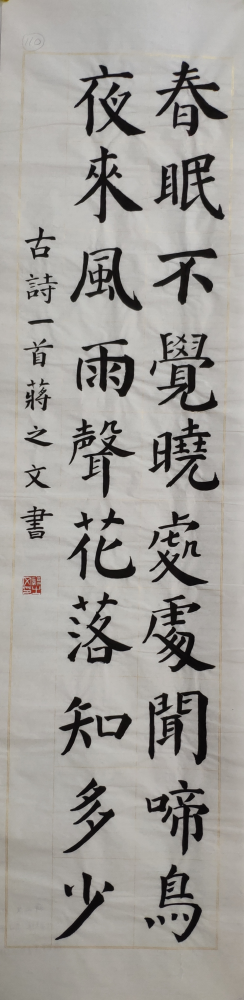 春眠不覺曉處處聞啼鳥
夜來風雨聲花落知多少
古詩一首蔣之文書
10